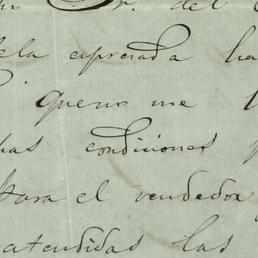 Sr. del
dela espresada ha
queno me
has condiciones p
Para el vendedor
atendidas las